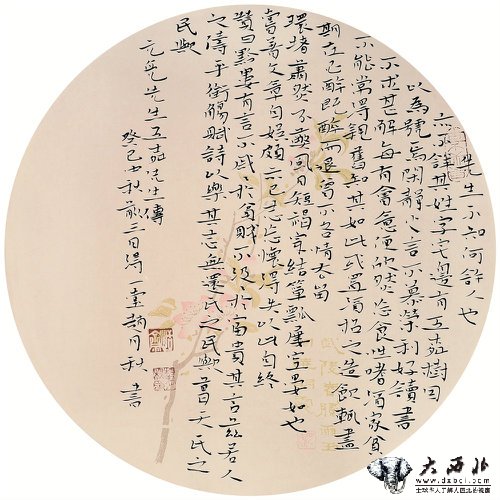 先生不知何許人也
亦不詳其姓字宅邊有五柳樹因
以為號焉閑靜少言不慕榮利好讀書
不求甚解每有會意便欣然忘食性嗜酒家貧
不能常得親舊知其如此或置酒招之造飲輒盡
期在必醉既醉而退曾不吝情去留
環堵蕭然不蔽風日短褐穿結簞瓢屢空晏如也
嘗著文章自娛頗示己志忘懷得失以此自終
贊曰黔婁有言不戚於貧賤不汲於富貴其言茲若人
之儔乎銜觴賦詩以樂其志無懷氏之民歟葛天氏之
民歟
元亮先生五柳先生傳
癸巳中秋前三日得一堂趙月秋書
大西北
www.dxbei.com